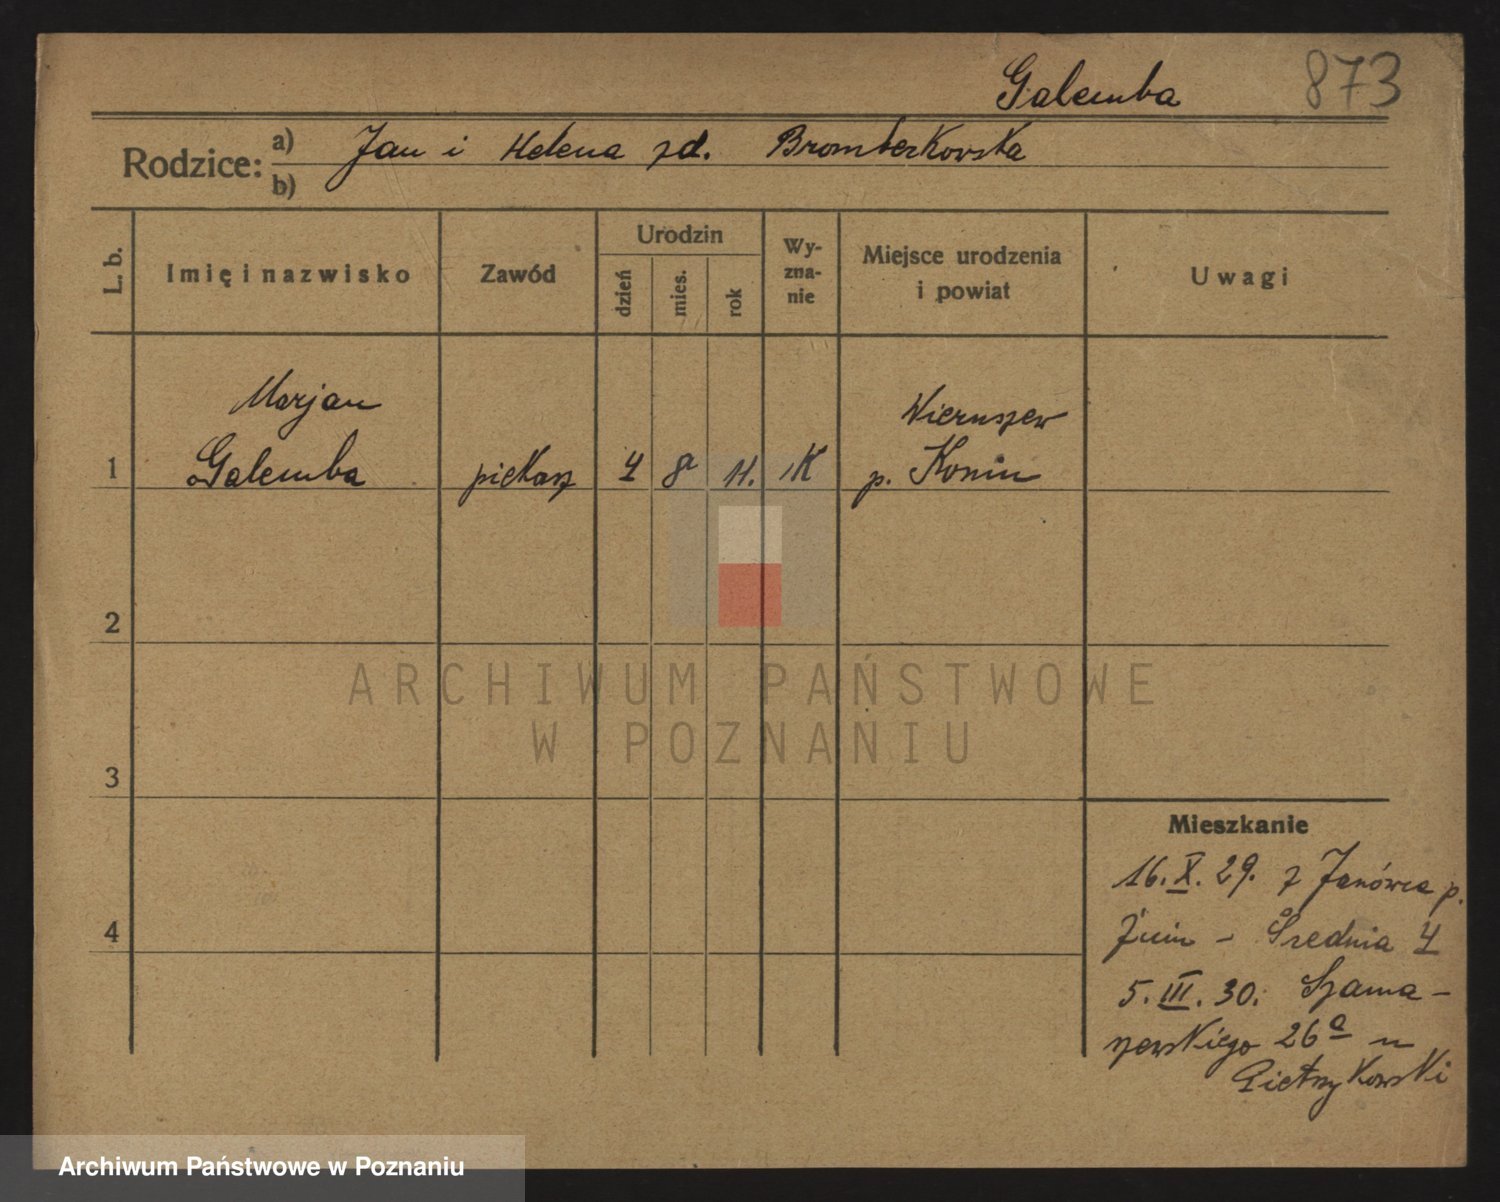 Galemba 873
Rodzice: a) Jan i Helena zd. Bromberkowska
b)
L. b. Imię i nazwisko Zawód Urodzin dzień mies. rok Wy-zna-nie Miejsce urodzenia i powiat Uwagi
Marjan Wieruszew
1 Galemba piekarz 4 8 11. K p. Konin
2
ARCHIWUM PAŃSTWOWE
W POZNANIU
3
Mieszkanie
16. X. 29. z Janówca p.
4 Żnin - Średnia 4
5. III. 30. Szama-
rzewskiego 26a u
Pietrzykowski
Archiwum Państwowe w Poznaniu